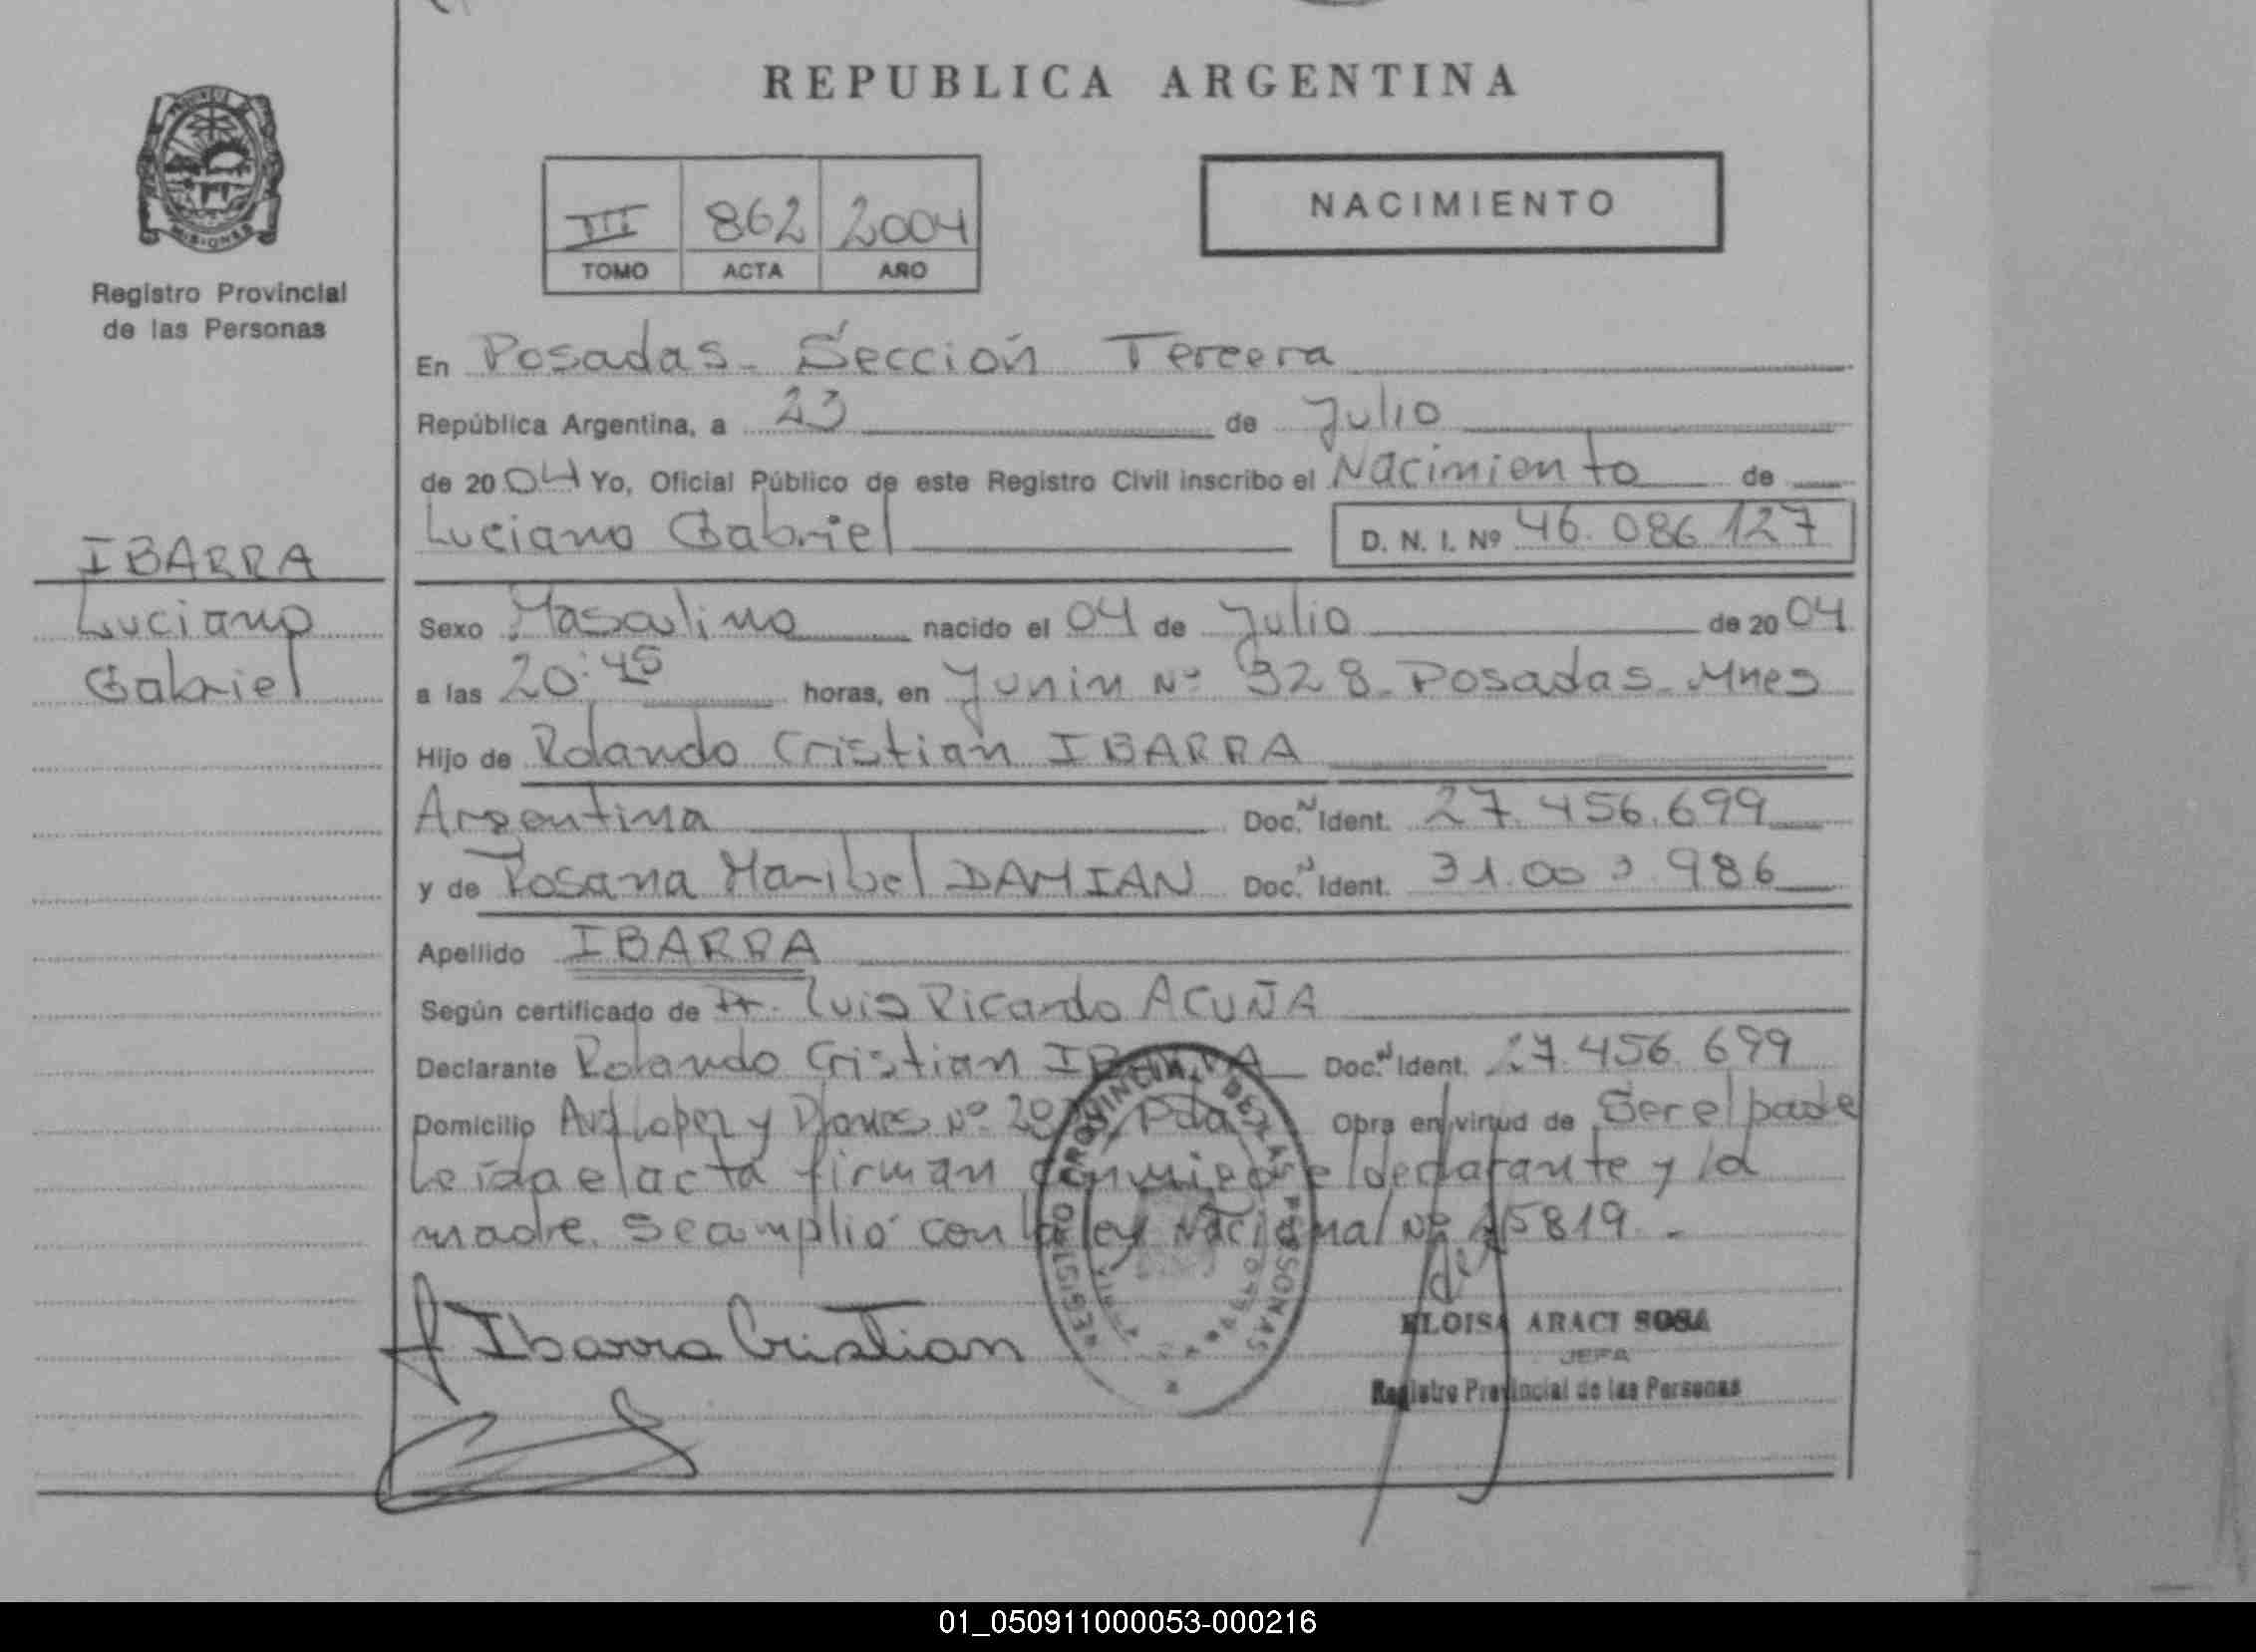 REPUBLICA ARGENTINA
PROVINCIA DE
MISIONES
Registro Provincial
de las Personas
III 862 2004
TOMO ACTA AÑO
NACIMIENTO
En Posadas - Sección Tercera
República Argentina, a 23 de Julio
de 2004 Yo, Oficial Público de este Registro Civil inscribo el Nacimiento de
Luciano Gabriel D. N. I. Nº 46.086.127
IBARRA
Luciano
Gabriel
Sexo Masculino nacido el 04 de Julio de 2004
a las 20:45 horas, en Junin Nº 328 - Posadas - Mnes
Hijo de Rolando Cristian IBARRA
Argentina Doc. N Ident. 27.456.699
y de Rosana Maribel DAMIAN Doc. N Ident. 986
Apellido IBARRA
Según certificado de Dr. Luis Ricardo ACUÑA
Declarante Rolando Cristian IBARRA Doc. N Ident. 27.456.699
Domicilio Avd Lopez y Planes Nº Pdas Obra en virtud de Ser el padre
Leída el acta firman conmigo el declarante y la
madre. Se amplió con la ley Nacional Nº 25819.-
Ibarra Cristian
REGISTRO PROVINCIAL DE LAS PERSONAS
ELOISA ARACI SOSA
JEFA
Registro Provincial de las Personas
01_050911000053-000216